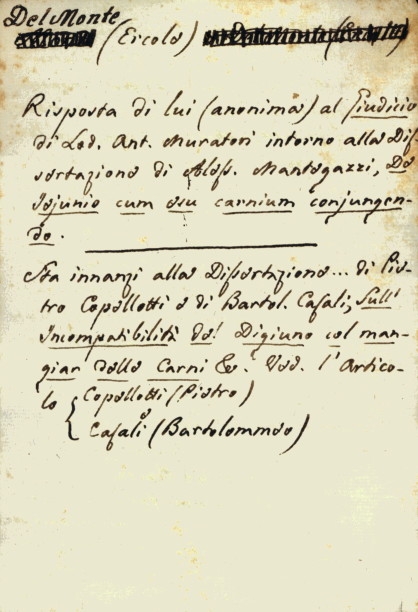 Del Monte
(Ercole)
Risposta di lui (anonima) al Giudicio
di Lod. Ant. Muratori intorno alla Dis
sertazione di Aless. Mantegazzi, De
Jejunio cum esu carnium conjungen-
do.
Sta innanzi alla Dissertazione... di Pie-
tro Copellotti e di Bartol. Casali, Sull'
Incompatibilità del Digiuno col man-
giar delle Carni &c. Ved. l'Artico-
lo { Copellotti (Pietro)
e
Casali (Bartolommeo)